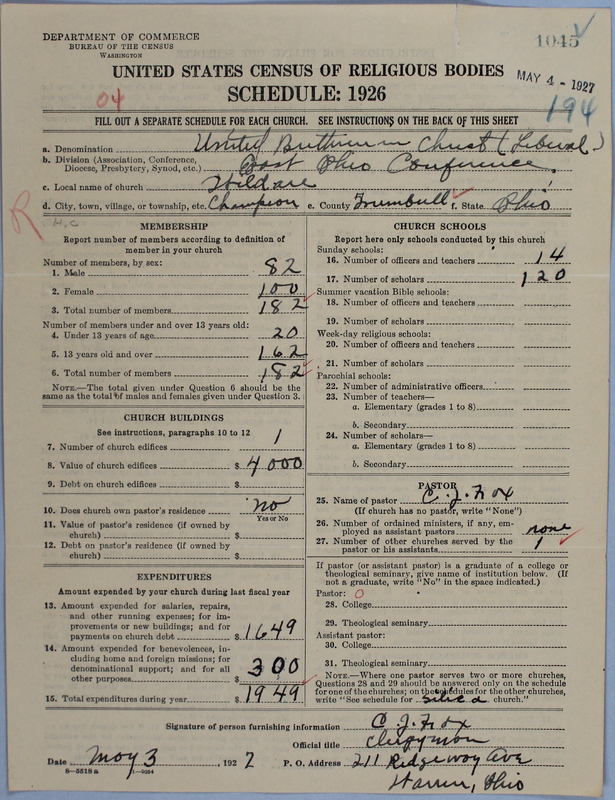 DEPARTMENT OF COMMERCE
BUREAU OF THE CENSUS
WASHINGTON
1045
UNITED STATES CENSUS OF RELIGIOUS BODIES
MAY 4 - 1927
SCHEDULE: 1926
04
194
FILL OUT A SEPARATE SCHEDULE FOR EACH CHURCH. SEE INSTRUCTIONS ON THE BACK OF THIS SHEET
a. Denomination United Brethren in Christ (Liberal)
b. Division (Association, Conference,
Diocese, Presbytery, Synod, etc.) East Ohio Conference
c. Local name of church Wildare
d. City, town, village, or township, etc. Champion e. County Trumbull f. State Ohio
R H.C
MEMBERSHIP
Report number of members according to definition of
member in your church
Number of members, by sex:
1. Male 82
2. Female 100
3. Total number of members 182
Number of members under and over 13 years old:
4. Under 13 years of age 20
5. 13 years old and over 162
6. Total number of members 182
NOTE.—The total given under Question 6 should be the
same as the total of males and females given under Question 3.
CHURCH BUILDINGS
See instructions, paragraphs 10 to 12
7. Number of church edifices 1
8. Value of church edifices $ 4000
9. Debt on church edifices $
10. Does church own pastor's residence no
Yes or No
11. Value of pastor's residence (if owned by
church) $
12. Debt on pastor's residence (if owned by
church) $
EXPENDITURES
Amount expended by your church during last fiscal year
13. Amount expended for salaries, repairs,
and other running expenses; for im-
provements or new buildings; and for
payments on church debt $ 1649
14. Amount expended for benevolences, in-
cluding home and foreign missions; for
denominational support; and for all
other purposes $ 300
15. Total expenditures during year $ 1949
CHURCH SCHOOLS
Report here only schools conducted by this church
Sunday schools:
16. Number of officers and teachers 14
17. Number of scholars 120
Summer vacation Bible schools:
18. Number of officers and teachers
19. Number of scholars
Week-day religious schools:
20. Number of officers and teachers
21. Number of scholars
Parochial schools:
22. Number of administrative officers
23. Number of teachers—
a. Elementary (grades 1 to 8)
b. Secondary
24. Number of scholars—
a. Elementary (grades 1 to 8)
b. Secondary
PASTOR
25. Name of pastor C. J. Fox
(If church has no pastor, write "None")
26. Number of ordained ministers, if any, em-
ployed as assistant pastors none
27. Number of other churches served by the
pastor or his assistants 1
If pastor (or assistant pastor) is a graduate of a college or
theological seminary, give name of institution below. (If
not a graduate, write "No" in the space indicated.)
Pastor: 0
28. College
29. Theological seminary
Assistant pastor:
30. College
31. Theological seminary
NOTE.—Where one pastor serves two or more churches,
Questions 28 and 29 should be answered only on the schedule
for one of the churches; on the schedules for the other churches,
write "See schedule for church."
Signature of person furnishing information C. J. Fox
Official title Clergyman
Date May 3 1927 P. O. Address 211 Ridgeway Ave
8—5518a
Warren, Ohio